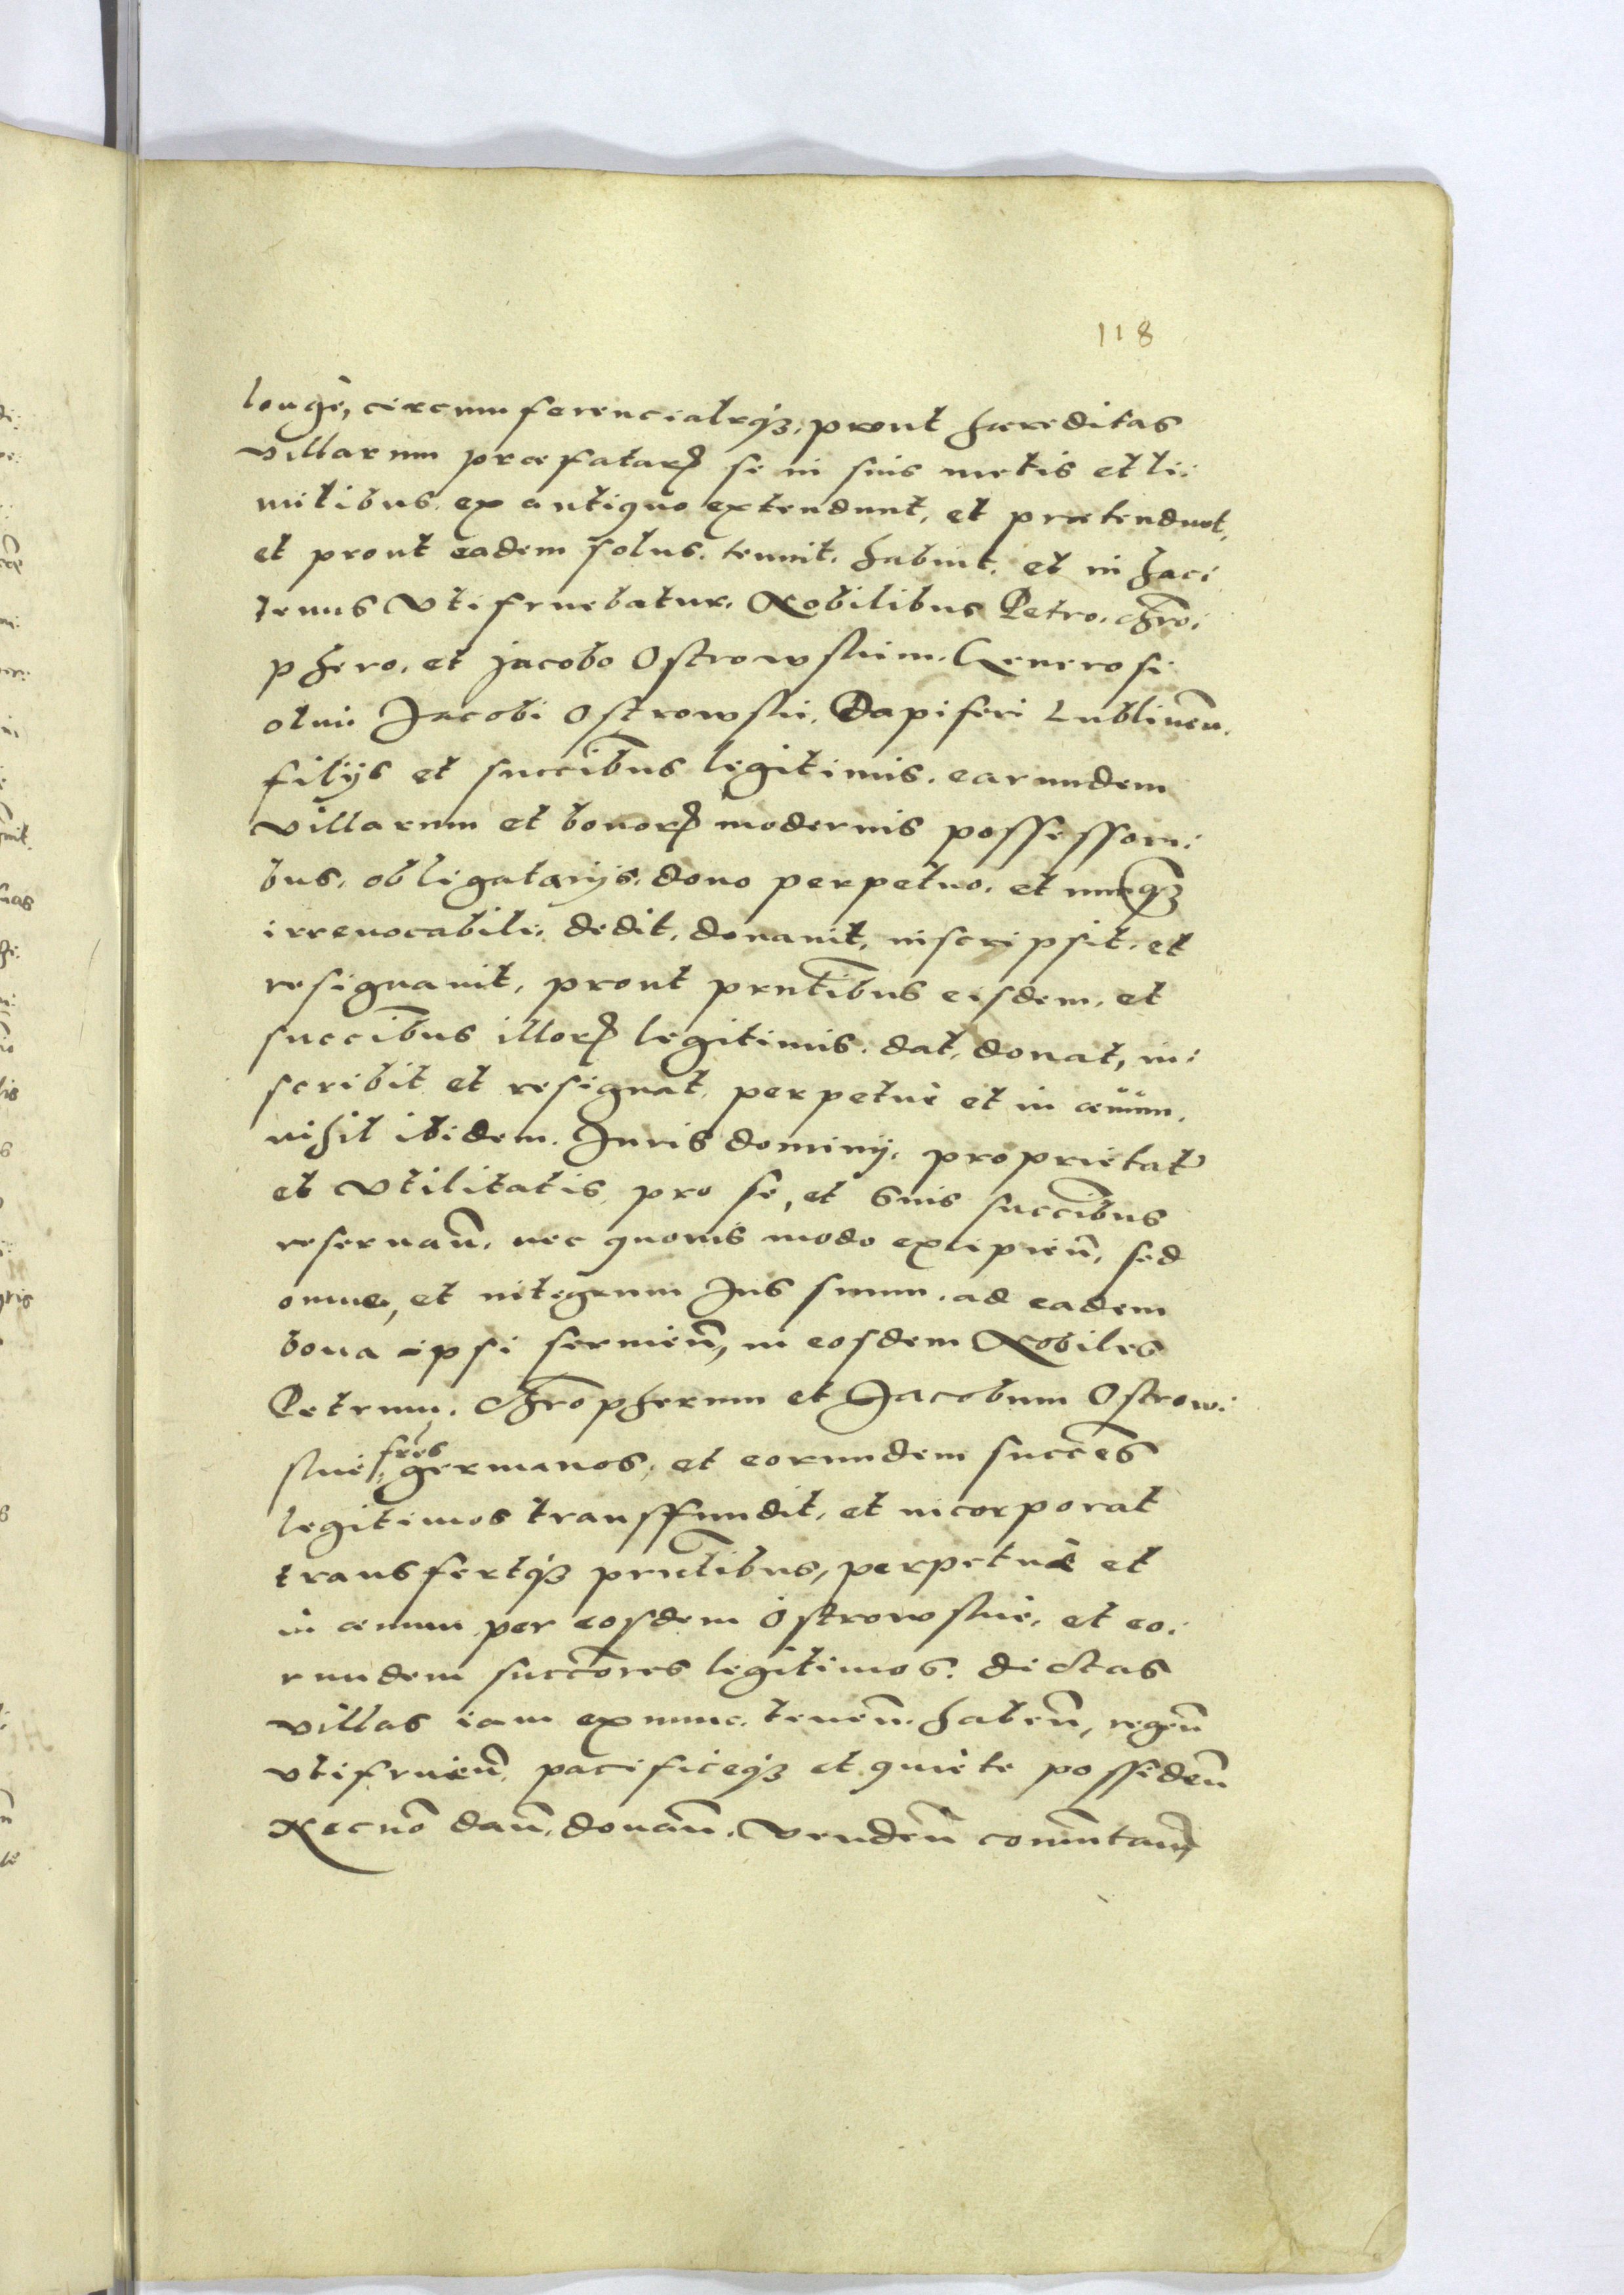 118
longe, circumferencialrqz, prout haereditas
villarum praefatarꝝ se in suis metis et li:
mitibus ex antiquo extendunt, et praetendunt,
et prout eadem solus tenuit, habuit, et in hac:
tenus Vtifruebatur, Nobilibus Petro, Chro:
phero, et Jacobo Ostrowskim, Generosi
olim Jacobi Ostrowski, Dapiferi Lublinen̄.
filijs et succībus legitimis, earundem
villarum et bonorꝝ modernis possessori:
bus, obligatarijs, dono perpetuo, et nunqz
irreuocabili, dedit, donauit, inscripsit, et
resignauit, prout prntībus eisdem, et
succībus illorꝝ legitimis, dat, donat, in:
scribit et resignat, perpetuè et in aeuum,
nihil ibidem Juris dominij, proprietat̄
et Vtilitatis pro se, et suis succībus
reseruan̄, nec quouis modo excipien̄, sed
omne, et integrum Jus suum, ad eadem
bona ipsi seruien̄, in eosdem Nobiles
Petrum, Chrōpherum et Jacobum Ostrow:
skie, frēs germanos, et eorundem succēs
legitimos transffundit, et incorporat
transfertqz prntībus, perpetuè et
in aeuum per eosdem Ostrowskie, et eo:
rundem succōres legitimos, dictas
villas iam ex nunc, tenen̄, haben̄, regen̄
Vtifruien̄, pacificeqz et quiete possiden̄
Necnō dan̄, donan̄, Venden̄ com̄utan̄